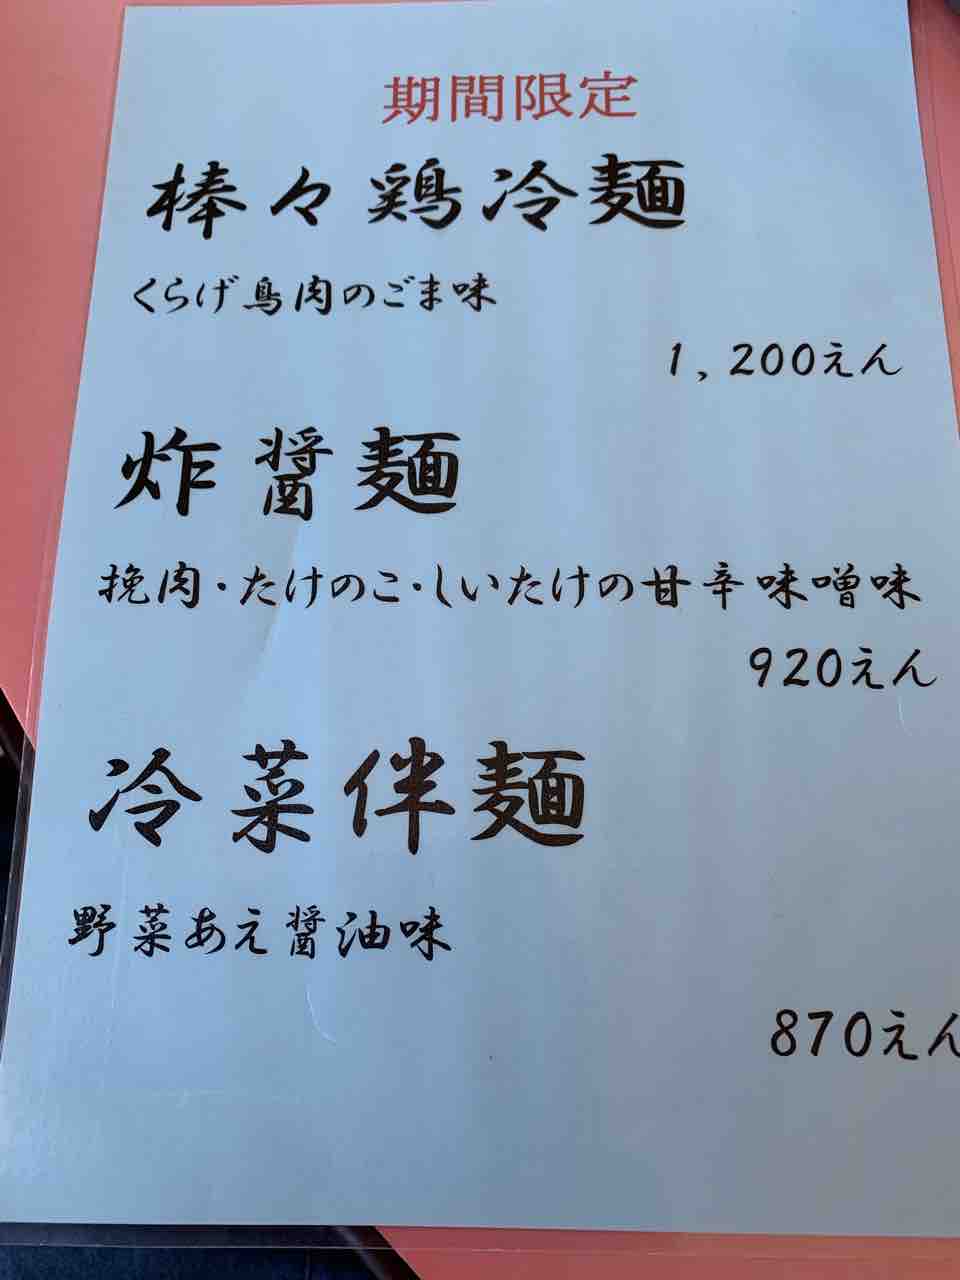 期間限定
棒々鶏冷麺
くらげ鳥肉のごま味
1,200えん
炸醤麺
挽肉・たけのこ・しいたけの甘辛味噌味
920えん
冷菜伴麺
野菜あえ醤油味
870えん